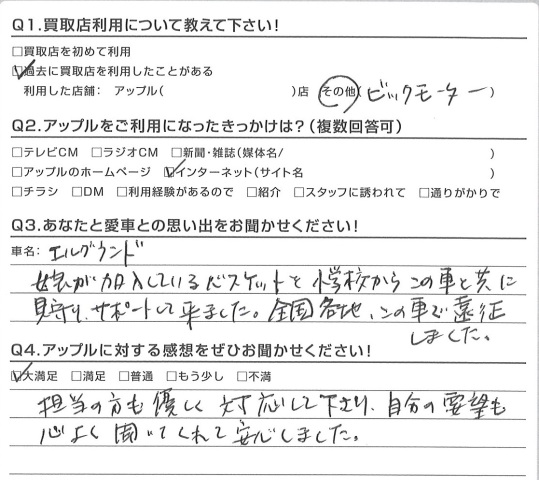 Q1.買取店利用について教えて下さい!
□買取店を初めて利用
☑過去に買取店を利用したことがある
利用した店舗: アップル( )店 その他(ビックモーター)
Q2.アップルをご利用になったきっかけは?(複数回答可)
□テレビCM □ラジオCM □新聞・雑誌(媒体名/ )
□アップルのホームページ ☑インターネット(サイト名 )
□チラシ □DM □利用経験があるので □紹介 □スタッフに誘われて □通りがかりで
Q3.あなたと愛車との思い出をお聞かせください!
車名: エルグランド
娘が加入しているバスケットを小学校からこの車と共に
見守り、サポートして来ました。全国各地、この車で遠征
しました。
Q4.アップルに対する感想をぜひお聞かせください!
☑大満足 □満足 □普通 □もう少し □不満
担当の方も優しく対応して下さり、自分の要望も
心よく聞いてくれて安心しました。